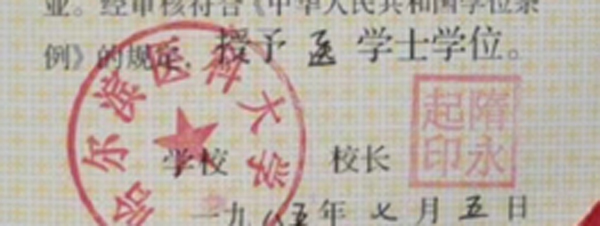 业。经审核符合《中华人民共和国学位条
例》的规定,授予 医 学士学位。
哈尔滨医科大学
学校 校长
隋永起印
一九八五年七月五日